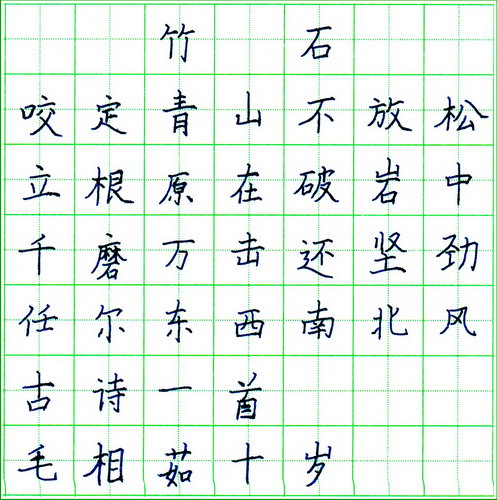 竹石
咬定青山不放松
立根原在破岩中
千磨万击还坚劲
任尔东西南北风
古诗一首
毛相茹十岁